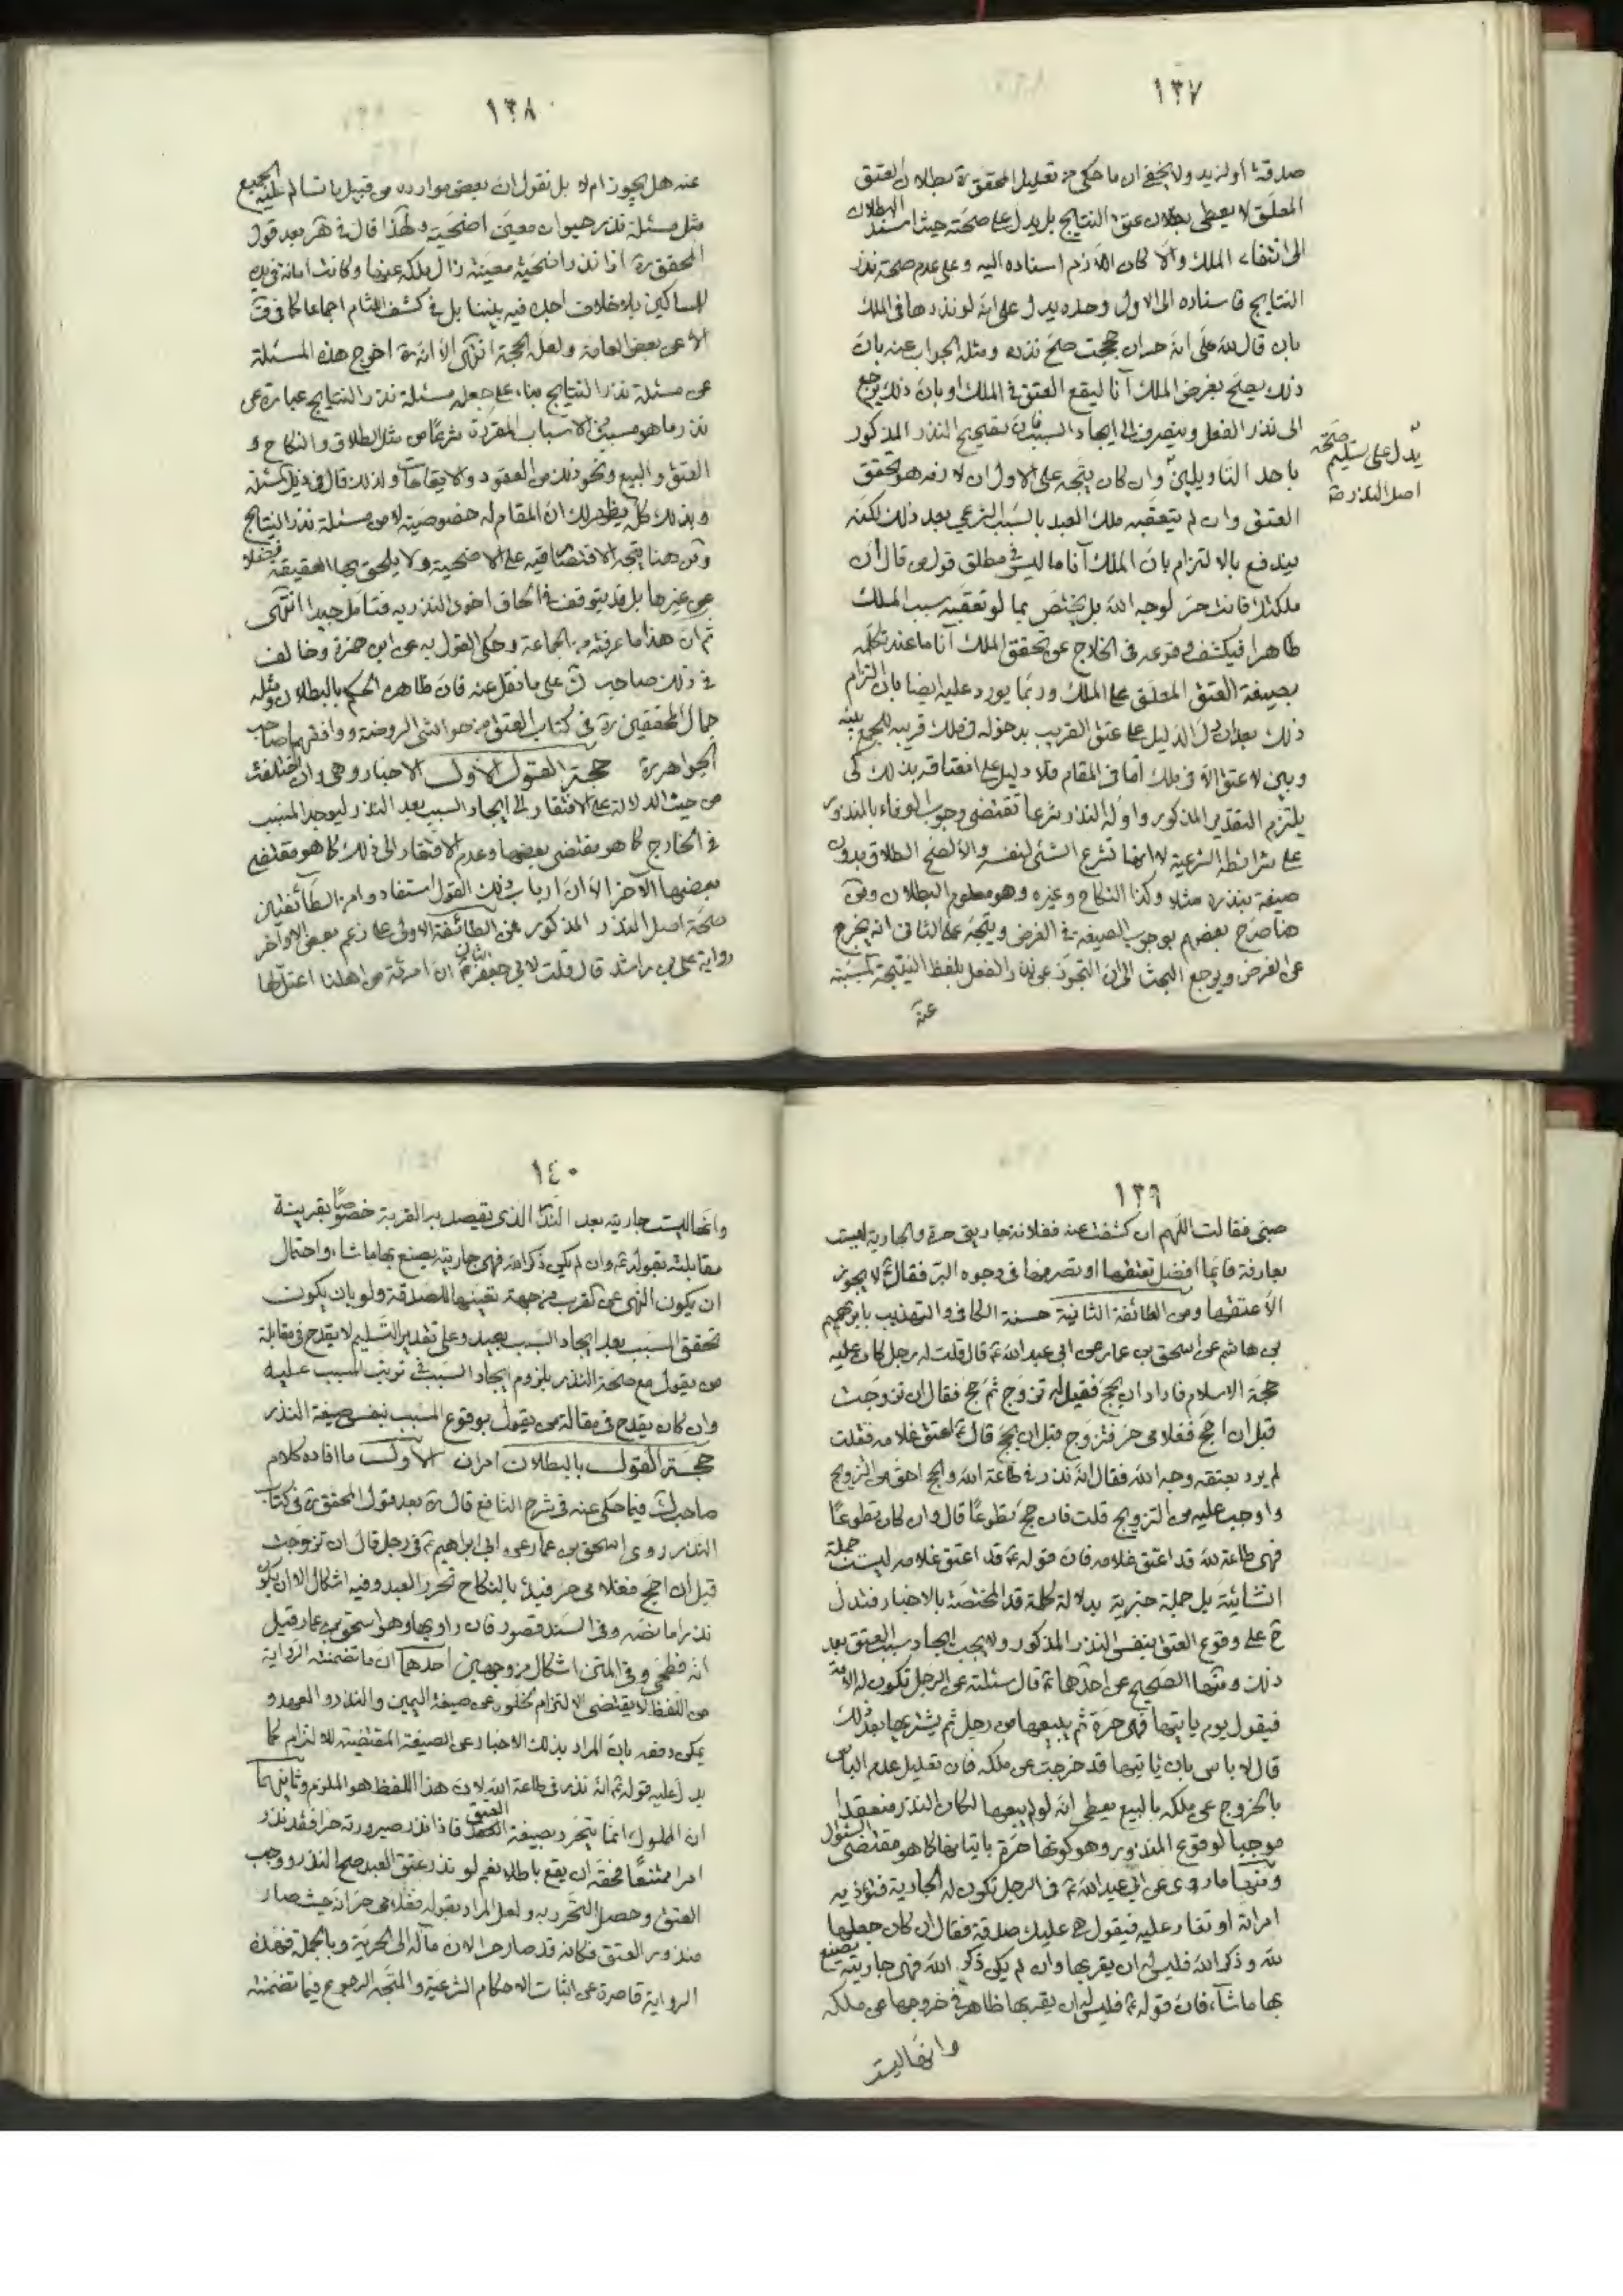 ١٣٧
صدقة او لزيد ولا يخفى ان ما حكى من تعليل المحقق ره بطلان العتق
المعلق لا يعطى بطلان عتق النتايج بل يدل على صحته حيث اسند البطلان
الى انتفاء الملك والا كان اللازم اسناده اليه وعلى عدم صحة نذر
النتايج فاسناده الى الاول وحده يدل على انه لو نذرها فى الملك
بان قال لله على انه حر ان حججت صح نذره ومثله الجواب عنه بان
ذلك يصح بفرض الملك آنا ليقع العتق فى الملك او بان ذلك يرجع
الى نذر الفعل وينصرف الى ايجاد السبب فان تصحيح النذر المذكور
يدل على تسليم صحة
اصل النذر صح
باحد التاويلين وان كان يتجه على الاول ان لازمه هو تحقق
العتق وان لم يتعقبه ملك العبد بالسبب الشرعي بعد ذلك لكنه
يندفع بالالتزام بان الملك آنا ما ليس فى مطلق قول من قال ان
ملكتك فانت حر لوجه الله بل يختص بما لو تعقبه سبب الملك
ظاهرا فيكشف وقوعه فى الخارج عن تحقق الملك آنا ما عند تكلمه
بصيغة العتق المعلق على الملك وربما يورد عليه ايضا بان التزام
ذلك بعد ان دل الدليل على عتق القريب بدخوله فى ملك قريبه للجمع بينه
وبين لا عتق الا فى ملك اما فى المقام فلا دليل على انعتاقه بذلك كى
يلتزم التقدير المذكور وادلة النذر شرعا تقتضى وجوب الوفاء بالمنذور
على شرائطه الشرعية لا انها تشرع الشئ لنفسه والا لصح الطلاق بدون
صيغة بنذره مثلا وكذا النكاح وغيره وهو معلوم البطلان ومن
هنا صرح بعضهم بوجوب الصيغة فى الفرض ويتجه على الثانى انه يخرج
عن الفرض ويرجع البحث الى ان التجوز عن نذر الفعل بلفظ النتيجة المسببة
عنه
١٣٨
عنه هل يجوز ام لا بل نقول ان بعض موارده من قبيل ما تسالم عليه الجميع
مثل مسئلة نذر حيوان معين اضحية ولهذا قال فى هر بعد قول
المحقق ره اذا نذر اضحية معينة زال ملكه عنها وكانت امانة فى يده
للمساكين بلا خلاف اجده فيه بيننا بل فى كشف اللثام اجماعا كما فى ف
الا عن بعض العامة ولعل الحجة انتهى الا انه ره اخرج هذه المسئلة
عن مسئلة نذر النتايج بناء على جعله مسئلة نذر النتايج عبارة عن
نذر ما هو مسبب من الاسباب المقررة شرعا من مثل الطلاق والنكاح و
العتق والبيع ونحو ذلك من العقود والايقاعات ولذلك قال فى ذيل المسئلة
وبذلك كله يظهر لك ان المقام له خصوصية لا من مسئلة نذر النتايج
ومن هنا يتجه الاقتصار فيه على الاضحية ولا يلحق بها العقيقة فضلا
عن غيرها بل قد يتوقف فى الحاق اخوى النذر به فتامل جيدا انتهى
ثم ان هذا ما عرفته من الجماعة وحكى القول به عن ابن حمزة وخالف
فى ذلك صاحب ك على ما نقل عنه فان ظاهره الحكم بالبطلان ومثله
جمال المحققين ره فى كتاب العتق من حواشى الروضة ووافقهما صاحب
الجواهر ره حجة القول الاول الاخبار وهى وان اختلفت
من حيث الدلالة على الافتقار الى ايجاد السبب بعد النذر ليوجد المسبب
فى الخارج كما هو مقتضى بعضها وعدم الافتقار الى ذلك كما هو مقتضى
بعضها الآخر الا ان ارباب ذلك القول استفادوا من الطائفتين
صحة اصل النذر المذكور فمن الطائفة الاولى على زعم بعض الاواخر
رواية على بن راشد قال قلت لابى جعفر الثانى ع ان امرئة من اهلنا اعتل لها
١٣٩
صبى فقالت اللهم ان كشفت عنه ففلانة جاريتى حرة والجارية ليست
بعارفة فايما افضل تعتقها او تصرفها فى وجوه البر فقال ع لا يجوز
الا عتقها ومن الطائفة الثانية حسنة الكافى والتهذيب بابراهيم
بن هاشم عن اسحق بن عمار عن ابى عبد الله ع قال قلت له رجل كان عليه
حجة الاسلام فاراد ان يحج فقيل له تزوج ثم حج فقال ان تزوجت
قبل ان احج فغلامى حر فتزوج قبل ان يحج قال ع اعتق غلامه فقلت
لم يرد بعتقه وجه الله فقال انه نذر فى طاعة الله والحج احق من التزويج
واوجب عليه من التزويج قلت فان حج تطوعا قال وان كان تطوعا
فهى طاعة لله قد اعتق غلامه فان قوله ع قد اعتق غلامه ليست جملة
انشائية بل جملة خبرية بدلالة كلمة قد المختصة بالاخبار فتدل
ح على وقوع العتق بنفس النذر المذكور ولا يجب ايجاد سبب العتق بعد
ذلك ومنها الصحيح عن احدهما ع قال سئلته عن الرجل تكون له الامة
فيقول يوم ياتيها فهى حرة ثم يبيعها من رجل ثم يشتريها بعد ذلك
قال لا باس بان ياتيها قد خرجت عن ملكه فان تعليل عدم الباس
بالخروج عن ملكه بالبيع يعطى انه لو لم يبيعها لكان النذر منعقدا
موجبا لوقوع المنذور وهو كونها حرة باتيانها كما هو مقتضى السئوال
ومنها ما روى عن ابى عبد الله ع فى الرجل تكون له الجارية فتوذيه
امرئته او تغار عليه فيقول هى عليك صدقة فقال ان كان جعلها
لله وذكر الله فليس له ان يقربها وان لم يكن ذكر الله فهى جاريته يصنع
بها ما شاء، فان قوله ع فليس له ان يقربها ظاهر فى خروجها عن ملكه
وانها ليست
١٤٠
وانها ليست جاريته بعد النذر الذى يقصد به القربة خصوصا بقرينة
مقابلته بقوله ع وان لم يكن ذكر الله فهى جاريته يصنع بها ما شاء، واحتمال
ان يكون النهى عن القرب من جهة تعينها للصدقة ولو بان يكون
تحقق المسبب بعد ايجاد السبب بعيد وعلى تقدير التسليم لا يقدح فى مقابلة
من يقول مع صحة النذر بلزوم ايجاد السبب فى ترتب المسبب عليه
وان كان يقدح فى مقالة من يقول بوقوع المسبب بنفس صيغة النذر
حجة القول بالبطلان امران الاول ما افاده كلام
صاحب ك فيما حكى عنه فى شرح النافع قال ره بعد قول المحقق ره فى كتاب
النذر روى اسحق بن عمار عن ابى ابراهيم ع فى رجل قال ان تزوجت
قبل ان احج فغلامى حر فبدء بالنكاح تحرر العبد وفيه اشكال الا ان يكون
نذرا ما نصه وفى السند قصور فان راويها وهو اسحق بن عمار قيل
انه فطحى وفى المتن اشكال من وجهين احدهما ان ما تضمنته الرواية
من اللفظ لا يقتضى الالتزام لخلوه عن صيغة اليمين والنذر والعهد و
يمكن دفعه بان المراد بذلك الاخبار عن الصيغة المقتضية للالتزام كما
يدل عليه قوله ع انه نذر فى طاعة الله لان هذا اللفظ هو الملزم وثانيهما
ان المملوك انما يتحرر بصيغة العتق فاذا نذر صيرورته حرا فقد نذر
امرا ممتنعا فحقه ان يقع باطلا نعم لو نذر عتق العبد صح النذر ووجب
العتق وحصل التحرر به ولعل المراد بقوله فغلامى حر انه حيث صار
منذور العتق فكانه قد صار حرا لان مآله الى الحرية وبالجملة فهذه
الرواية قاصرة عن اثبات الاحكام الشرعية والمتجه الرجوع فيما تضمنته